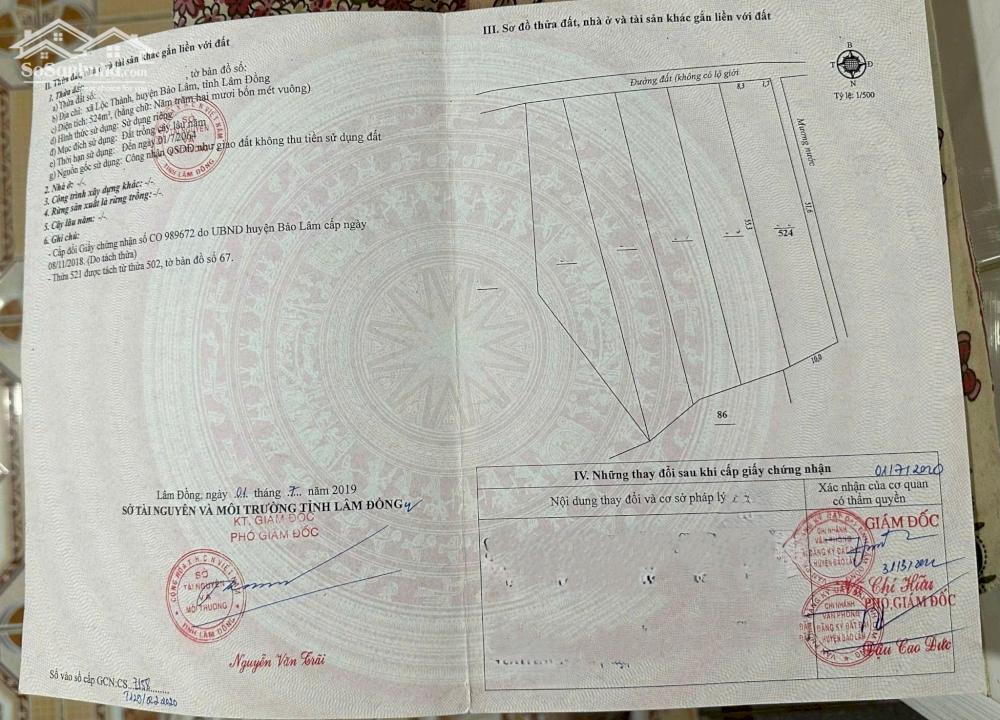 SoSanhnha.com
II. Thửa đất, nhà ở và tài sản khác gắn liền với đất
1. Thửa đất:
a) Thửa đất số: , tờ bản đồ số:
b) Địa chỉ: xã Lộc Thành, huyện Bảo Lâm, tỉnh Lâm Đồng
c) Diện tích: 524m², (bằng chữ: Năm trăm hai mươi bốn mét vuông)
d) Hình thức sử dụng: Sử dụng riêng
đ) Mục đích sử dụng: Đất trồng cây lâu năm
e) Thời hạn sử dụng: Đến ngày 01/7/2064
g) Nguồn gốc sử dụng: Công nhận QSDĐ như giao đất không thu tiền sử dụng đất
2. Nhà ở: -/-
3. Công trình xây dựng khác: -/-
4. Rừng sản xuất là rừng trồng: -/-
5. Cây lâu năm: -/-
6. Ghi chú:
- Cấp đổi Giấy chứng nhận số CO 989672 do UBND huyện Bảo Lâm cấp ngày
08/11/2018. (Do tách thửa)
- Thửa 521 được tách từ thửa 502, tờ bản đồ số 67.
Lâm Đồng, ngày 01 tháng 7 năm 2019
SỞ TÀI NGUYÊN VÀ MÔI TRƯỜNG TỈNH LÂM ĐỒNG
KT. GIÁM ĐỐC
PHÓ GIÁM ĐỐC
CỘNG HÒA X.H.C.N VIỆT NAM
SỞ
TÀI NGUYÊN
VÀ
MÔI TRƯỜNG
TỈNH LÂM ĐỒNG
Nguyễn Văn Trãi
Số vào sổ cấp GCN:CS
III. Sơ đồ thửa đất, nhà ở và tài sản khác gắn liền với đất
B
T Đ
N
Tỷ lệ: 1/500
Đường đất (không có lộ giới
8,3
1,7
Mương nước
31,6
35,3
524
10,0
86
IV. Những thay đổi sau khi cấp giấy chứng nhận
Nội dung thay đổi và cơ sở pháp lý
Xác nhận của cơ quan
có thẩm quyền
GIÁM ĐỐC
CHI NHÁNH
VĂN PHÒNG
ĐĂNG KÝ ĐẤT ĐAI
HUYỆN BẢO LÂM
Chí Hữu
PHÓ GIÁM ĐỐC
CHI NHÁNH
VĂN PHÒNG
ĐĂNG KÝ ĐẤT ĐAI
HUYỆN BẢO LÂM
Đậu Cao Đức